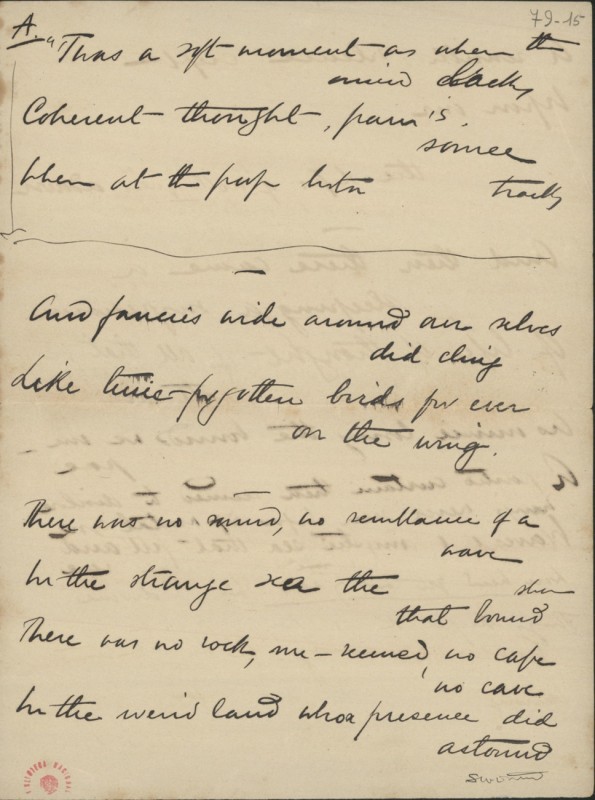 79-15
A.
"'Twas a soft moment as when the
mind lacks
Coherent thought, pain's
When at the
tracks
And fancies wide around our selves
did cling
Like time-forgotten birds for ever
on the wing.
There was no sound, no semblance of a
wave
In the strange sea the
shore
that bound
There was no rock, me-seemed, no cape
no cave
In the weird land whose presence did
astound